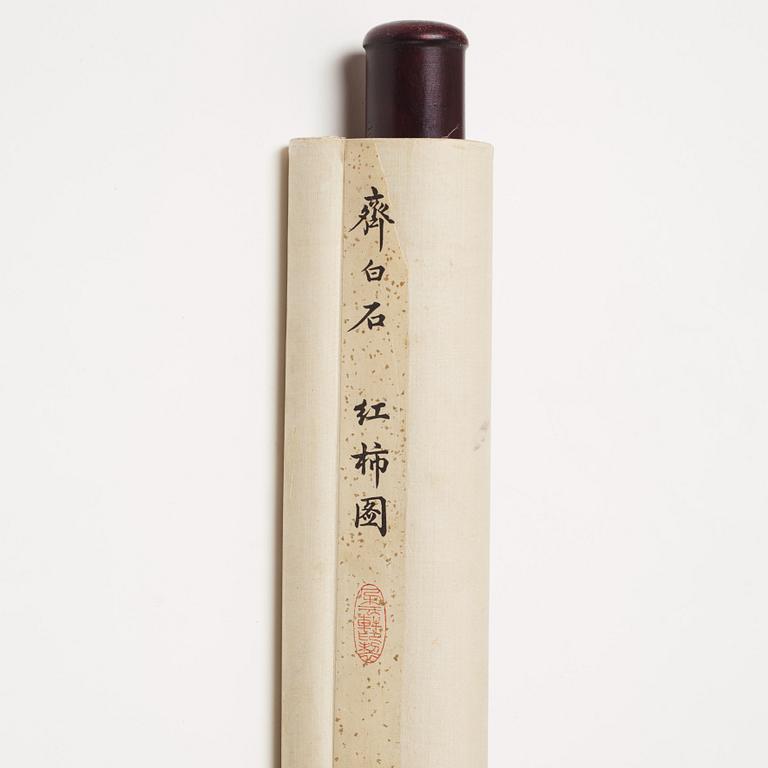 齊白石 紅柿图